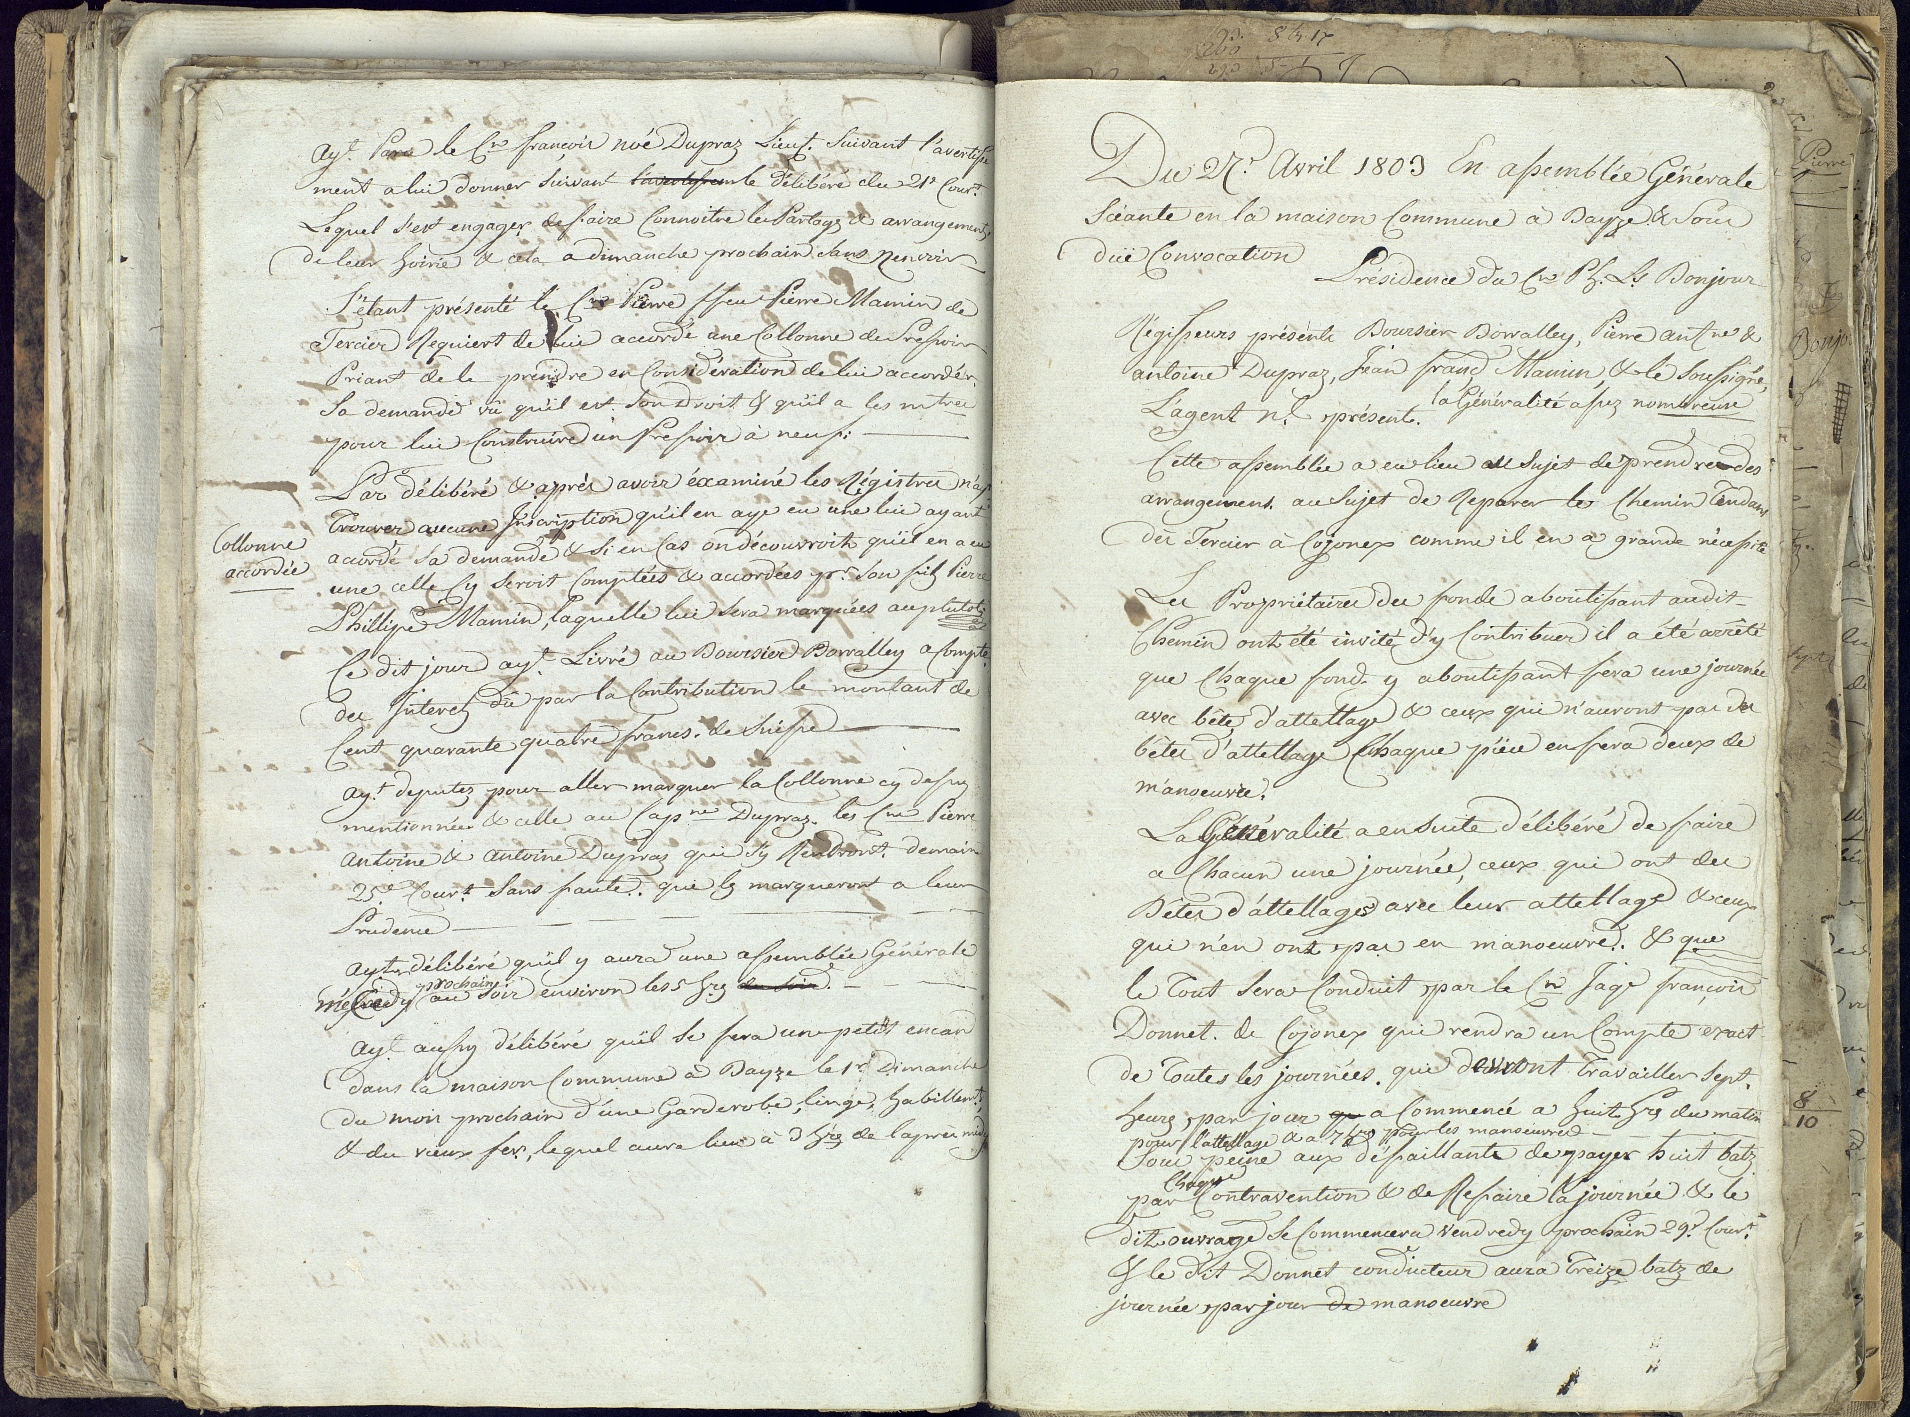 ayt. Paru le Cn françois noé Dupraz Lieut. Suivant l'avertisse
ment a lui donner suivant le délibéré du 21e Court.
Lequel s'est engager de faire Connoitre les Partage & arrangements
de leur hoirie & cela a dimanche prochain sans Renvoir
S'étant présenté le Cn Pierre ffeu Pierre Mamin de
Tercier Requiert de lui accordé une Collonne de Pressoir
Priant de le prendre en Considération de lui accordér
Sa demande vû qu'il est son Droit & qu'il a les
pour lui Construire un Pressoir à neuf:
Par délibéré & après avoir éxaminé les Régistres n'ayt
Trouver aucune Inscription qu'il en aye eu une lui ayant
Collonne
accordée
acordé sa demande & si en Cas on découvroit qu'il en a eu
une celle Cy seroit Comptées & accordées pr. son fils Pierre
Phillipe Mamin, laquelle lui sera marquées au plutot
Ce dit jour ayt. Livré au Boursier Borralley a Compte
des Interets dû par la Contribution le montant de
Cent quarante quatre francs de Suisse
ayt. deputez pour aller marquer la Collonne cy dessus
mentionnée & celle au Capne Dupraz. les Cns Pierre
antoine & antoine Dupraz qui s'y Rendront demain
25e. Court. Sans faute. que ls marqueront a leur
Prudence
ayt. délibéré qu'il y aura une assemblée Générale
mécredy prochain au soir environ les 5 hrs du soir.
ayt. aussy délibéré qu'il se fera un petit encan
dans la maison Commune à Bayze le 1r Dimanche
du mois prochain d'une Garderobe, linge, habillemts,
& du vieux fer, lequel aura lieu à 3 hrs de l'aprés midy
Du 27e. Avril 1803 En assemblée Générale
Séante en la maison Commune à Bayze & sous
düe Convocation
Présidence du Cn Ph. Ls Bonjour
Régisseurs présents Boursier Borralley, Pierre antne &
antoine Dupraz, Jean frans Mamin & le Soussigné,
L'agent nl. présent. la Généralité assez nombreuse
Cette assemblée a eu lieu au Sujet de prendre des
arrangement au sujet de Reparer le Chemin Tendant
des Tercier à Cojonex comme il en a grande nécessité
Les Propriétaires des fonds aboutissant audit
Chemin ont été invité d'y Contribuer il a été arrêté
que Chaque fond y aboutissant fera une journée
avec bête d'attellage & ceux qui n'auront pas des
bêtes d'attellage Chaque pièce en fera deux de
manoeuvre.
La Généralité a ensuite délibéré de faire
a Chacun une journée, ceux qui ont des
Bêtes d'attellages avec leur attellage & ceux
qui n'en ont pas en manoeuvre. & que
le Tout sera Conduit par le Cn Jage françois
Donnet de Cojonex qui rendra un Compte exact
de Toutes les journées. qui devront Travailler sept.
heurs par jour qu a Commencé a huit hrs du matin
pour l'attellage & a 7 hrs pour les manoeuvres
sous peine aux défaillants de payer huit batz
par Chaque Contravention & de Refaire la journée & le
dit ouvrage se Commencera vendredy prochain 29e. Court.
& le dit Donnet conducteur aura Treize batz de
journée par jour de manoeuvre
8
10